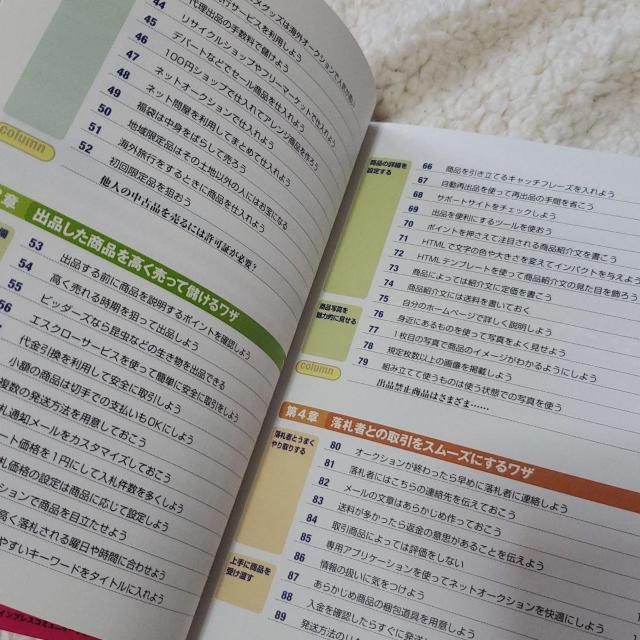 44 代理出品の手数料で儲けよう
45 リサイクルショップやフリーマーケットで仕入れよう
46 デパートなどでセール商品を仕入れよう
47 100円ショップで仕入れてアレンジ商品を作ろう
48 ネットオークションで仕入れよう
49 ネット問屋を利用してまとめて仕入れよう
50 福袋は中身をばらして売ろう
51 地域限定品はその土地以外の人にはお宝になる
52 海外旅行をするときに商品を仕入れよう
初回限定品を狙おう
column
他人の中古品を売るには許可証が必要?
章 出品した商品を高く売って儲けるワザ
53 出品する前に商品を説明するポイントを確認しよう
54 高く売れる時期を狙って出品しよう
55 ビッダーズなら昆虫などの生き物を出品できる
56 エスクローサービスを使って簡単に安全に取引しよう
代金引換を利用して安全に取引しよう
小額の商品は切手での支払いもOKにしよう
複数の発送方法を用意しておこう
札通知メールをカスタマイズしておこう
ート価格を1円にして入札件数を多くしよう
札価格の設定は商品に応じて設定しよう
ションで商品を目立たせよう
高く落札される曜日や時間に合わせよう
やすいキーワードをタイトルに入れよう
商品の詳細を
設定する
66 商品を引き立てるキャッチフレーズを入れよう
67 自動再出品を使って再出品の手間を省こう
68 サポートサイトをチェックしよう
69 出品を便利にするツールを使おう
70 ポイントを押さえて注目される商品紹介文を書こう
71 HTMLで文字の色や大きさを変えてインパクトを与えよう
72 HTMLテンプレートを使って商品紹介文の見た目を飾ろう
73 商品によっては紹介文に定価を書こう
74 商品紹介文には送料を書いておく
75 自分のホームページで詳しく説明しよう
商品写真を
魅力的に見せる
76 身近にあるものを使って写真をよく見せよう
77 1枚目の写真で商品のイメージがわかるようにしよう
78 規定枚数以上の画像を掲載しよう
79 組み立てて使うものは使う状態での写真を使う
column
出品禁止商品はさまざま……
第4章 落札者との取引をスムーズにするワザ
落札者とうまく
やり取りする
80 オークションが終わったら早めに落札者に連絡しよう
81 落札者にはこちらの連絡先を伝えておこう
82 メールの文章はあらかじめ作っておこう
83 送料が多かったら返金の意思があることを伝えよう
84 取引商品によっては評価をしない
85 専用アプリケーションを使ってネットオークションを快適にしよう
86 情報の扱いに気をつけよう
上手に商品を
受け渡す
87 あらかじめ商品の梱包道具を用意しよう
88 入金を確認したらすぐに発送
89